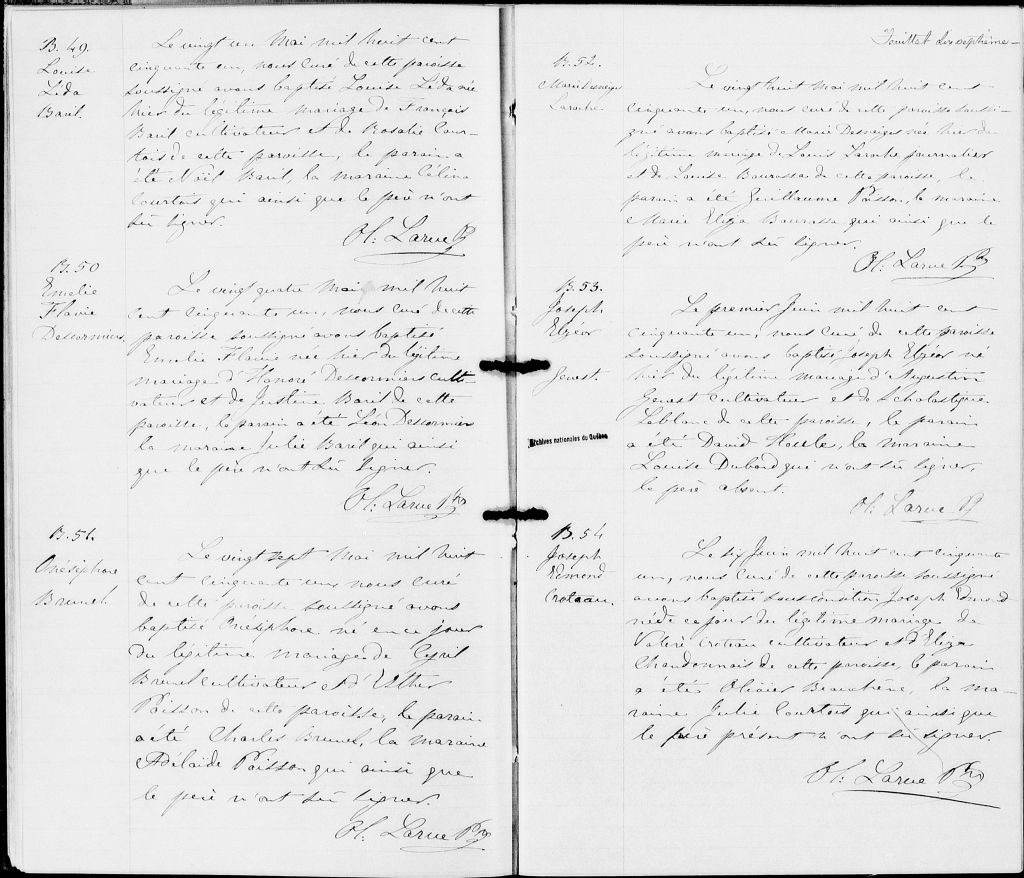 B. 49.
Louise
Léda
Baril.
Le vingt un Mai mil huit cent
cinquante un, nous Curé de cette paroisse
soussigné avons baptisé Louise Léda née
hier du légitime mariage de François
Baril cultivateur et de Rosalie Cour-
tois de cette paroisse, le parain a
été Noël Baril, la maraine Célina
Courtois qui ainsi que le père n'ont
su signer.
Ol: Larue Ptre
B. 50
Emelie
Flavie
Descormiers.
Le vingt quatre Mai mil huit
cent cinquante un, nous curé de cette
paroisse soussigné avons baptisé
Emelie Flavie née hier du légitime
mariage d'Honoré Descormiers culti-
vateur et de Justine Baril de cette
paroisse, le parain a été Léon Descormier
la maraine Julie Baril qui ainsi
que le père n'ont su signer.
Ol: Larue Ptre
B. 51.
Onésiphore
Brunel.
Le vingt sept Mai mil huit
cent cinquante un, nous curé
de cette paroisse soussigné avons
baptisé Onésiphore né en ce jour
du légitime mariage de Cyril
Brunel cultivateur et d'Esther
Poisson de cette paroisse, le parain
a été Charles Brunel, la maraine
Adélaïde Poisson qui ainsi que
le père n'ont su signer.
Ol: Larue Ptre
Feuillet dix septième
B. 52.
Marie Desneiges
Laroche.
Le vingt huit Mai mil huit cent
cinquante un, nous curé de cette paroisse soussi-
gné avons baptisé Marie Desneiges née hier du
légitime mariage de Louis Laroche journalier
et de Louise Bourassa de cette paroisse, le
parain a été Guillaume Poisson, la maraine
Marie Eliza Bourassa qui ainsi que le
père n'ont su signer.
Ol: Larue Ptre
B. 53.
Joseph
Elzéor
Genest.
Le premier Juin mil huit cent
cinquante un, nous curé de cette paroisse
soussigné avons baptisé Joseph Elzéor né
hier du légitime mariage d'Augustin
Genest cultivateur et de Scholastique
Leblanc de cette paroisse, le parain
a été David Houle, la maraine
Louise Dubord qui n'ont su signer,
le père absent.
Ol: Larue Ptre
Archives nationales du Québec
B. 54
Joseph
Edmond
Croteau.
Le six Juin mil huit cent cinquante
un, nous Curé de cette paroisse soussigné
avons baptisé sous condition Joseph Edmond
né de ce jour du légitime mariage de
Valère Croteau cultivateur et d'Eliza
Chandonnais de cette paroisse, le parain
a été Olivier Beauchêne, la ma-
raine Julie Courtois qui ainsi que
le père présent n'ont su signer.
Ol: Larue Ptre